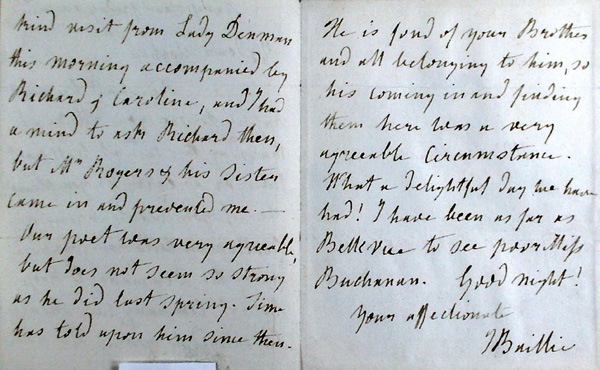 kind visit from Lady Denman
this morning accompanied by
Richard & Caroline, and I had
a mind to ask Richard then,
but Mr Rogers & his Sister
came in and prevented me. —
Our poet was very agreeable,
but does not seem so strong
as he did last spring. Time
has told upon him since then.
He is fond of your Brother
and all belonging to him, so
his coming in and finding
them here was a very
agreeable Circumstance.
What a delightful day we have
had! I have been as far as
Bellevue to see poor Miss
Buchanan. Good night!
Your affectionate
J Baillie